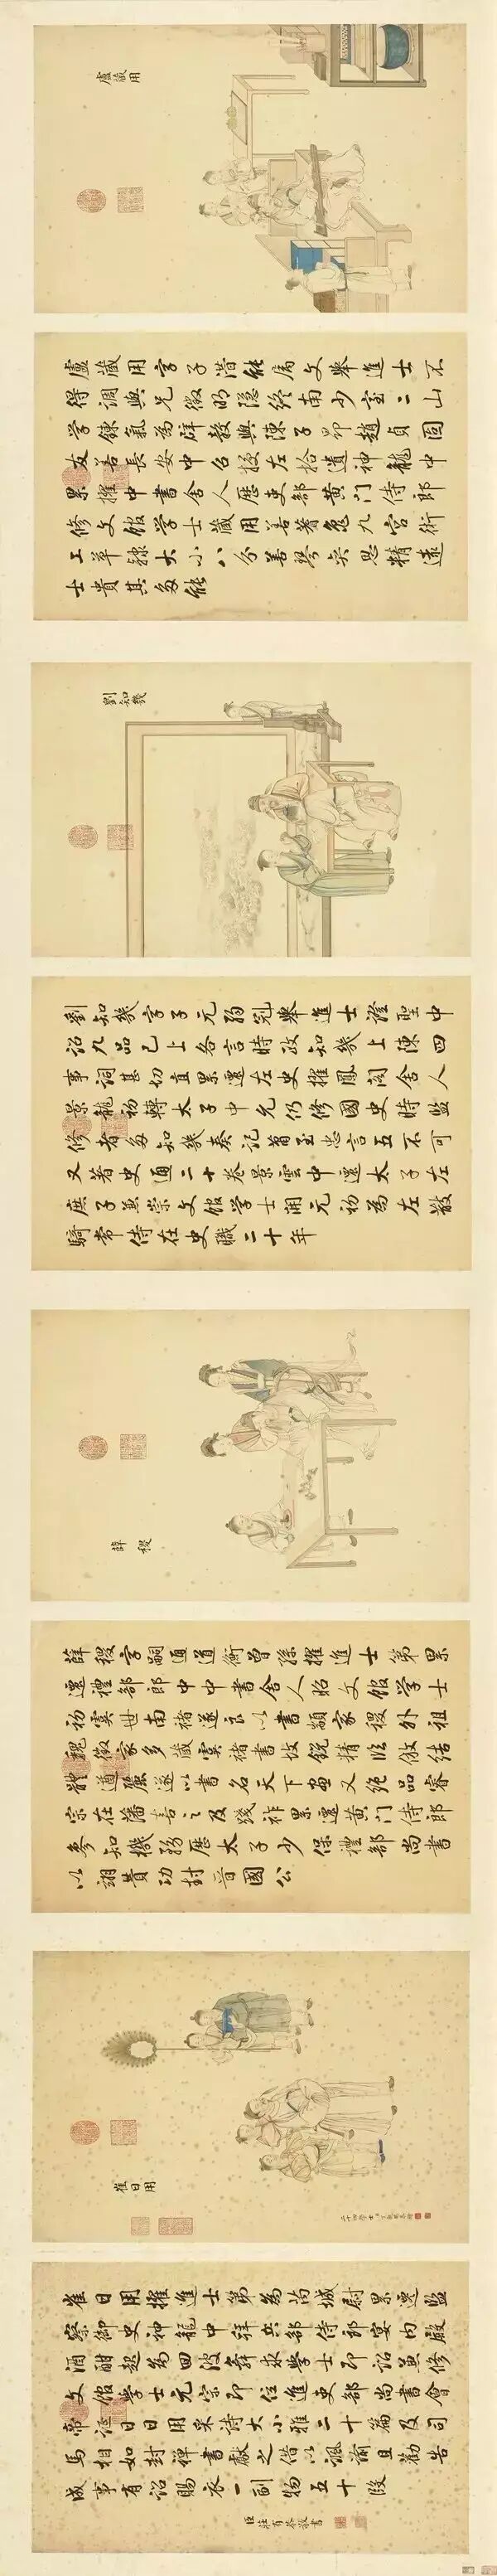 盧藏用
盧藏用字子潛能属文舉進士不
得調與兄徵明隱終南少室二山
學鍊氣為辟穀與陳子昂趙貞固
友善長安中召授左拾遺神龍中
累擢中書舍人歷吏部黄门侍郎
修文館学士藏用善蓍龜九宫術
工草隸大小八分善琴奕思精遠
士貴其多能
劉知幾
劉知幾字子元弱冠舉進士證聖中
詔九品已上各言時政知幾上陳四
事詞甚切直累遷左史擢鳳閣舍人
景龍初轉太子中允仍修國史時監
修者多知幾奏記蕭至忠言五不可
又著史通二十卷景雲中遷太子左
庶子兼崇文館学士開元初為左散
騎常侍在史職二十年
薛稷
薛稷字嗣通道衡曾孫擢進士第累
遷禮部郎中中書舍人昭文館学士
初虞世南褚遂良以書顓家稷外祖
魏徵家多藏虞褚書故鋭精臨倣結
體遒麗遂以書名天下画又绝品睿
宗在藩喜之及踐祚累遷黄门侍郎
参知機務歷太子少保禮部尚書
以翊贊功封晋國公
崔日用
崔日用擢進士第為芮城尉累遷監
察御史神龍中拜兵部侍郎宴内殿
酒酣起為回波舞求學士即詔兼修
文館學士元宗即位進吏部尚書會
帝誕日日用采詩大小雅二十篇及司
馬相如封禪書獻之借以諷諭且勸告
成事有詔賜衣一副物五十段
臣莊有恭敬書